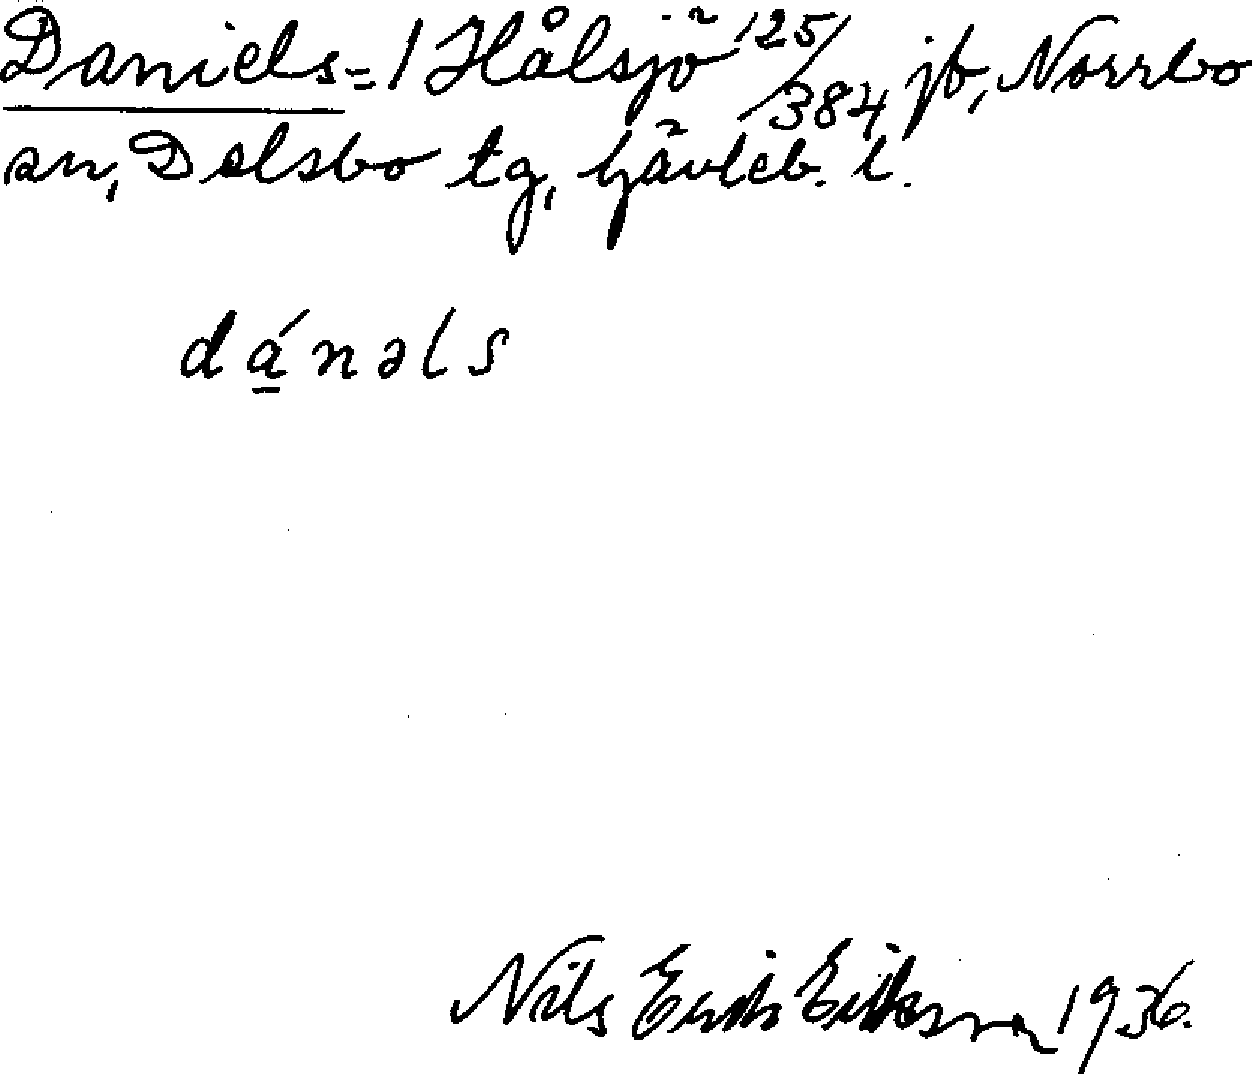 Daniels=1 Hålsjö 125/384 jb, Norrbo
sn, Delsbo tg, Gävleb. l.
dá̱nəls
Nils Erik Eriksson 1936.